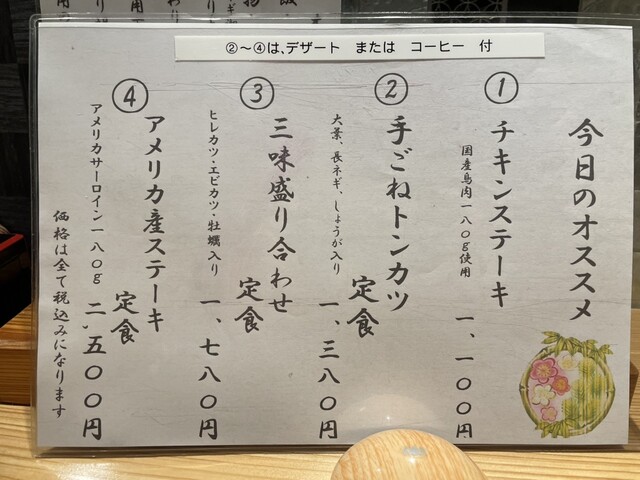 ②～④は、デザート または コーヒー 付
今日のオススメ
① チキンステーキ
国産鳥肉一八〇g使用
一、一〇〇円
② 手ごねトンカツ
定食
大葉、長ネギ、しょうが入り
一、三八〇円
③ 三味盛り合わせ
定食
ヒレカツ・エビカツ・牡蠣入り
一、七八〇円
④ アメリカ産ステーキ
定食
アメリカサーロイン一八〇g
二、五〇〇円
価格は全て税込みになります